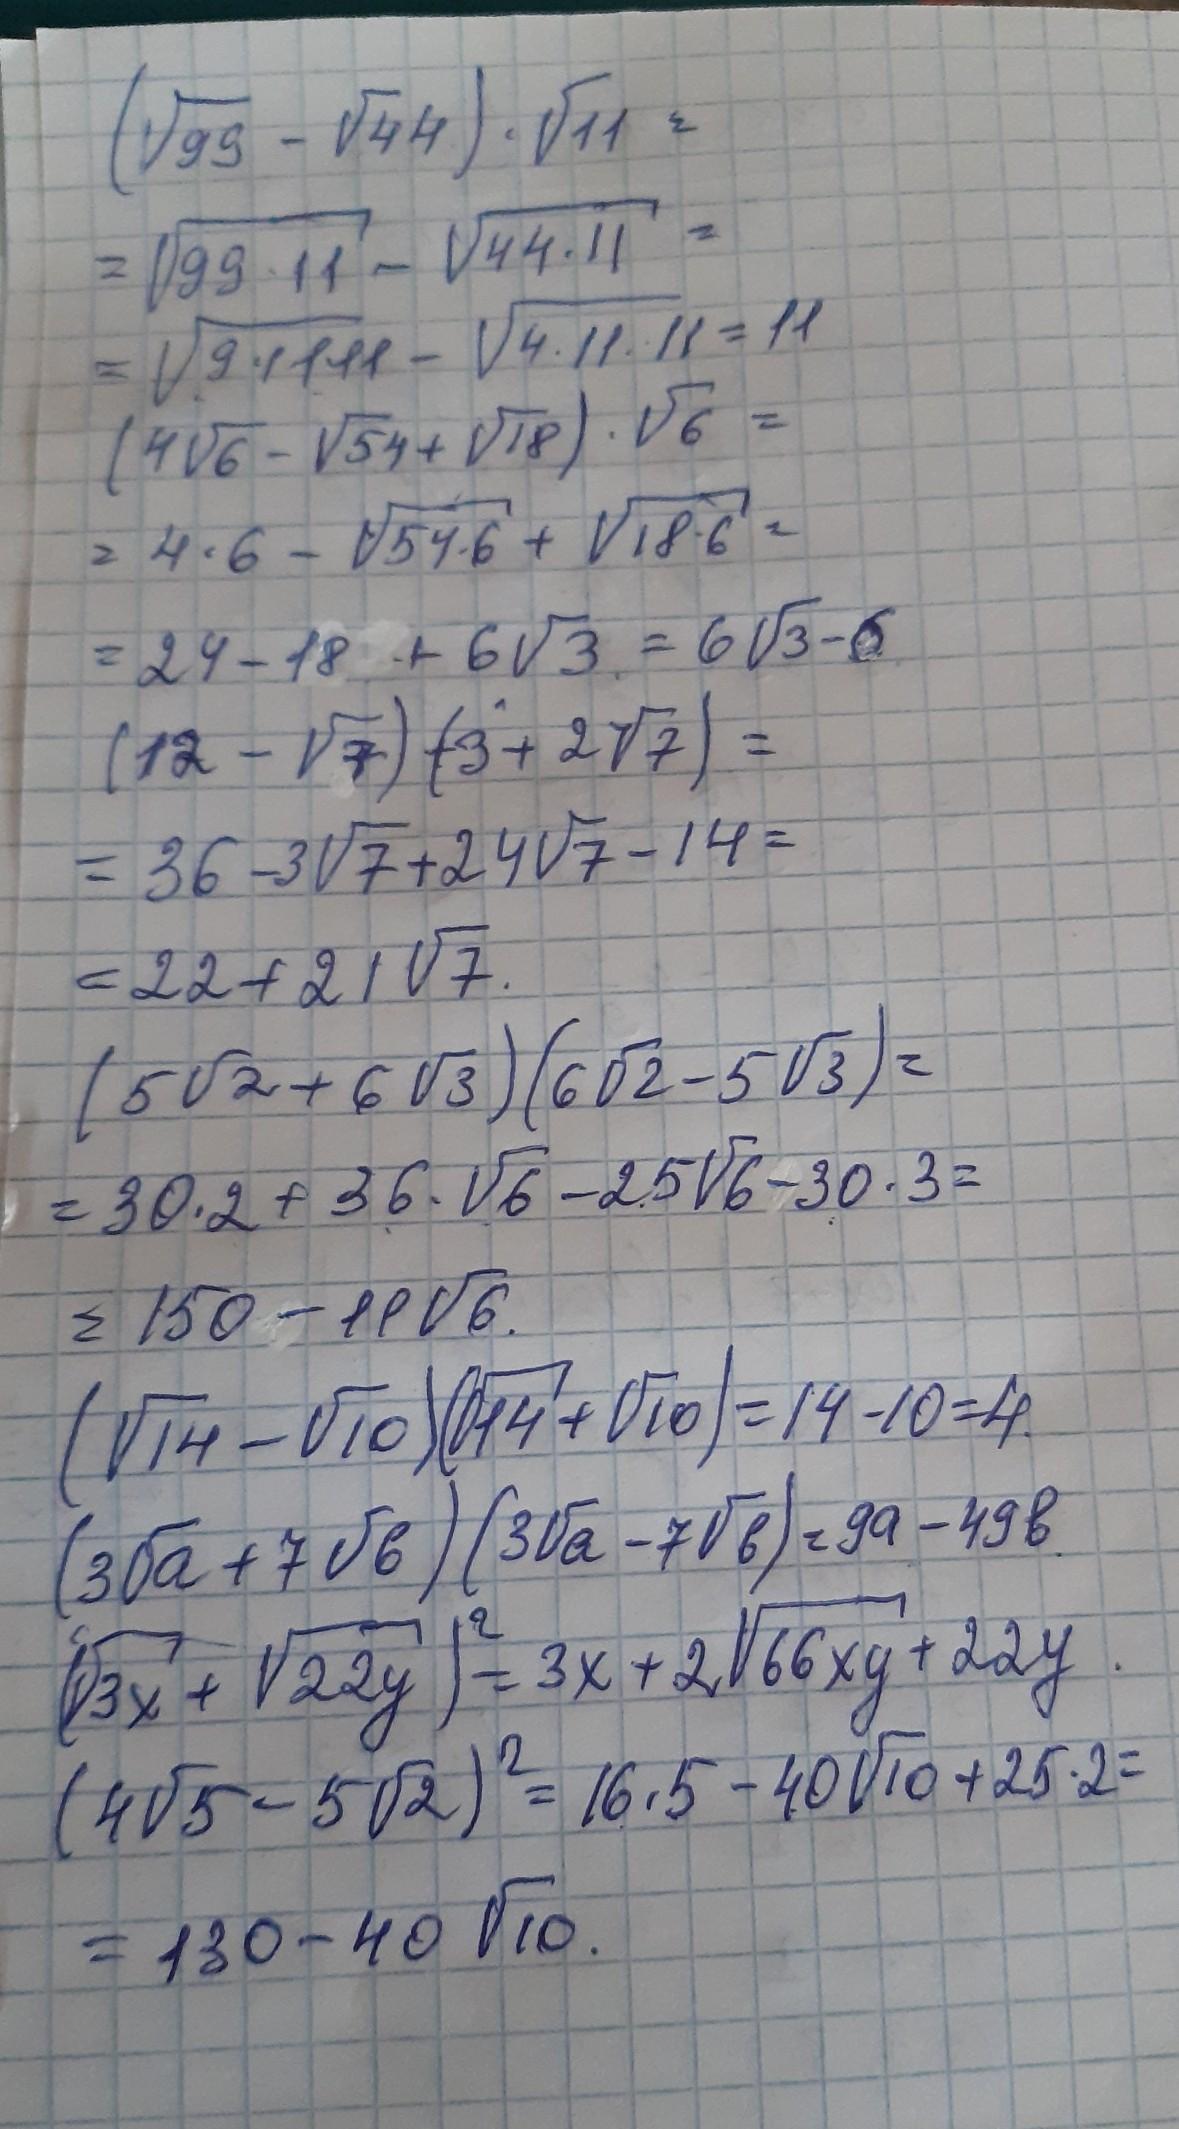 (√99 - √44) · √11 =
= √99 · 11 - √44 · 11 =
= √9 · 11 · 11 - √4 · 11 · 11 = 11
(4√6 - √54 + √18) · √6 =
= 4 · 6 - √54 · 6 + √18 · 6 =
= 24 - 18 + 6√3 = 6√3 - 6
(12 - √7) (3 + 2√7) =
= 36 - 3√7 + 24√7 - 14 =
= 22 + 21√7.
(5√2 + 6√3)(6√2 - 5√3) =
= 30 · 2 + 36 · √6 - 25√6 - 30 · 3 =
= 150 - 11√6.
(√14 - √10)(√14 + √10) = 14 - 10 = 4.
(3√a + 7√b)(3√a - 7√b) = 9a - 49b
(√3x + √22y)² = 3x + 2√66xy + 22y.
(4√5 - 5√2)² = 16 · 5 - 40√10 + 25 · 2 =
= 130 - 40√10.